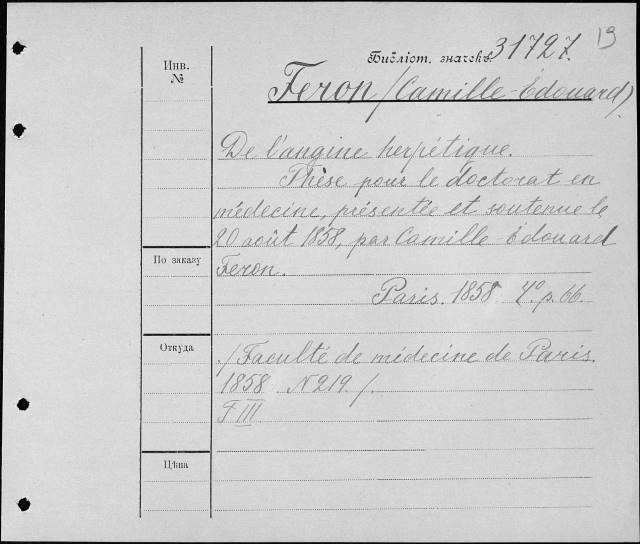 19
Библіот. значекъ 31727.
Инв.
№
Feron (Camille-Edouard)
De l'angine herpétique.
Thèse pour le doctorat en
médecine, présentée et soutenue le
20 août 1858, par Camille-Edouard
По заказу
Feron.
Paris. 1858. 4° p. 66.
Откуда
(Faculté de médecine de Paris.
1858 N 219.)
T III
Цѣна